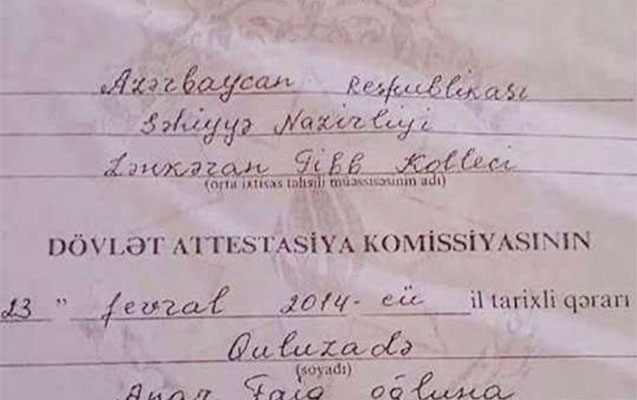 Azərbaycan Respublikası
Səhiyyə Nazirliyi
Lənkəran Tibb Kolleci
(orta ixtisas təhsili müəssisəsinin adı)
DÖVLƏT ATTESTASİYA KOMİSSİYASININ
23 " fevral 2014-cü il tarixli qərarı
Quluzadə
(soyadı)
Anar Faiq oğluna